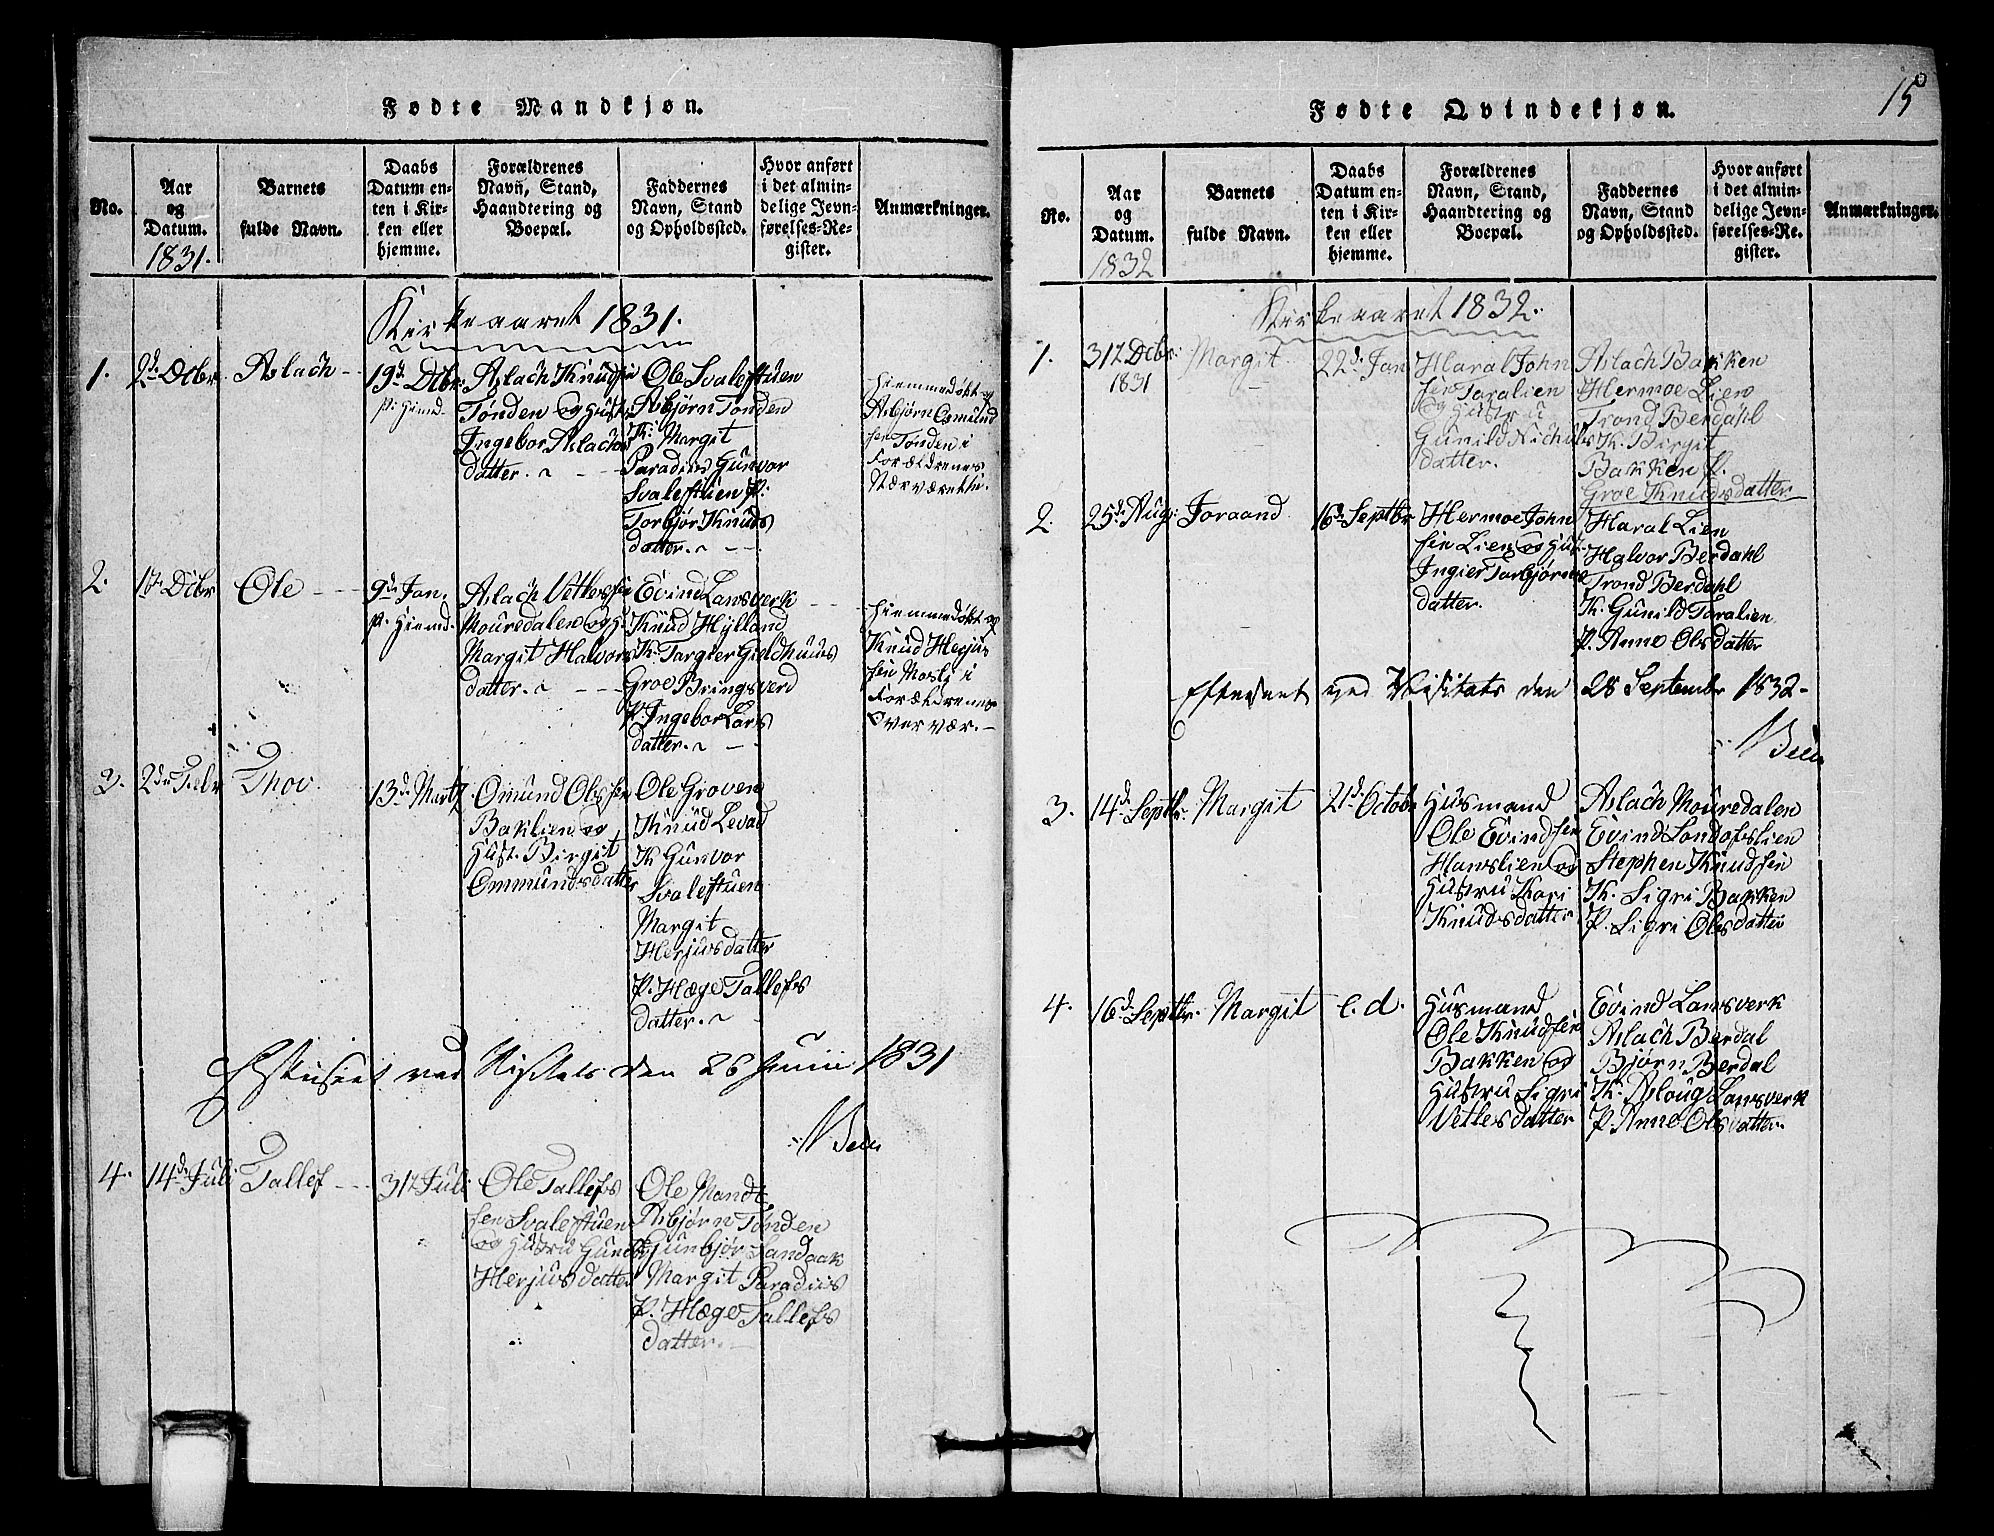 Fødte Mandkjøn.
No.
Aar
og
Datum.
1831.
Barnets
fulde Navn.
Daabs
Datum en-
ten i Kir-
ken eller
hjemme.
Forældrenes
Navn, Stand,
Haandtering og
Boepæl.
Faddernes
Navn, Stand
og Opholdssted.
Hvor anført
i det almin-
delige Jevn-
førelses-Re-
gister.
Anmærkninger.
Kirkeaaret 1831.
1.
2de Dcbr
Aslach
19de Dcbr.
Aslach Knudsen
Tønden og Hust.
Ingebor Aslachs
datter.
Ole Svalestuen
Asbjørn Tønden
K: Margit
Paradiis Gunvor
Svalestuen P:
Torbjør Knuds
datter.
Hiemmedøbt af
Asbjørn Osmund
sen Tønden i
Forældrenes
Nærværelse.
2.
17 Dcbr
Ole
9de Jan.
Aslach Vetlesen
Mouredalen og
Margit Halvors
datter.
Evind Lansverk
Knud Hylland
K. Targier Gieldhuus
Groe Bringsverd
P. Ingebor Lars
datter.
Hiemmedøbt af
Knud Herjus
sen Moslj i
Forældrenes
Overvær.
3.
2de Febr
Thov
13de Martz
Omund Olssen
Baklien og
Hust. Birgit
Ommundsdatter
Ole Groven
Knud Levad
K Gunvor
Svalestuen
Margit
Herjusdatter
P. Hæge Tallefs
datter.
Efterseet ved Visitats den 26 Junii 1831
4.
14de Juli
Tallef
31te Juli
Ole Tallefs
sen Svalestuen
og Hustru
Herjusdatter
Ole Mandt
Asbjørn Tønden
Gunbjør Sandaak
Margit Paradiis
P. Hæge Tallefs
datter.
15
Fødte Qvindekjøn.
No.
Aar
og
Datum.
1832
Barnets
fulde Navn.
Daabs
Datum en-
ten i Kir-
ken eller
hjemme.
Forældrenes
Navn, Stand,
Haandtering og
Boepæl.
Faddernes
Navn, Stand
og Opholdssted.
Hvor anført
i det almin-
delige Jevn-
førelses-Re-
gister.
Anmærkninger.
Kirkeaaret 1832.
1.
31te Dcbr.
1831
Margit
22de Jan
Haral John
sen Taralien
og Hustru
Gunild Nichuls
datter.
Aslach Bakken
Hermoe Lien
Trond Berdahl
K. Birgit
Bakken P.
Groe Knudsdatter
2.
25de Aug:
Joraand
16de Septbr
Hermoe John
sen Lien og Hust.
Ingier Torbjørns
datter.
Haral Lien
Halvor Berdahl
Trond Berdahl
K. Gunild Taralien
P. Anne Olsdatter
Efterseet ved Visitats den 28 September 1832-
3.
14de Septbr.
Margit
21de Octobr
Husmand
Ole Evindsen
Hanslien og
Hustru Kari
Knudsdatter
Aslach Mouredalen
Evind Londofslien
Stephen Knudsen
K. Sigri Bakken
P. Sigri Olsdatter
4.
16de Septbr.
Margit
e. d.
Husmand
Ole Knudsen
Bakken og
Hustru Sigri
Vetlesdatter
Evind Lansverk
Aslach Berdal
Bjørn Berdal
K. Asloug Lansverk
P. Anne Olsdatter.